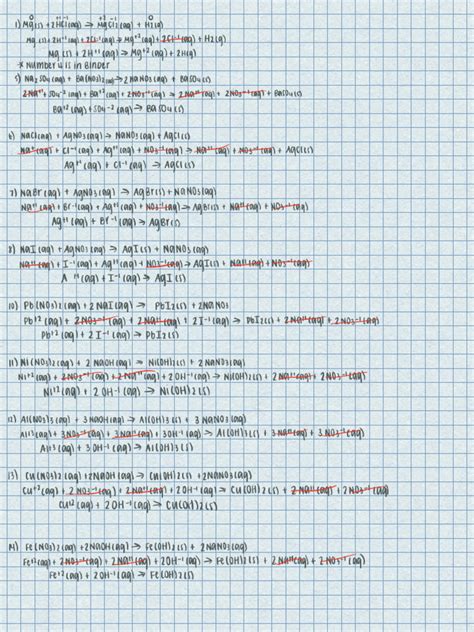 0 +1 -1 +2 -1 0
1) Mg(s) + 2HCl(aq) → MgCl2(aq) + H2(g)
Mg(s) + 2H+1(aq) + 2Cl-1(aq) → Mg+2(aq) + 2Cl-1(aq) + H2(g)
Mg(s) + 2H+1(aq) → Mg+2(aq) + 2H(g)
* Number 4 is in Binder
5) Na2SO4(aq) + Ba(NO3)2(aq) → 2NaNO3(aq) + BaSO4(s)
2Na+1(aq) + SO4-2(aq) + Ba+2(aq) + 2NO3-1(aq) → 2Na+1(aq) + 2NO3-1(aq) + BaSO4(s)
Ba+2(aq) + SO4-2(aq) → BaSO4(s)
6) NaCl(aq) + AgNO3(aq) → NaNO3(aq) + AgCl(s)
Na+1(aq) + Cl-1(aq) + Ag+1(aq) + NO3-1(aq) → Na+1(aq) + NO3-1(aq) + AgCl(s)
Ag+1(aq) + Cl-1(aq) → AgCl(s)
7) NaBr(aq) + AgNO3(aq) → AgBr(s) + NaNO3(aq)
Na+1(aq) + Br-1(aq) + Ag+1(aq) + NO3-1(aq) → AgBr(s) + Na+1(aq) + NO3-1(aq)
Ag+1(aq) + Br-1(aq) → AgBr(s)
8) NaI(aq) + AgNO3(aq) → AgI(s) + NaNO3(aq)
Na+1(aq) + I-1(aq) + Ag+1(aq) + NO3-1(aq) → AgI(s) + Na+1(aq) + NO3-1(aq)
A +1(aq) + I-1(aq) → AgI(s)
10) Pb(NO3)2(aq) + 2NaI(aq) → PbI2(s) + 2NaNO3
Pb+2(aq) + 2NO3-1(aq) + 2Na+1(aq) + 2I-1(aq) → PbI2(s) + 2Na+1(aq) + 2NO3-1(aq)
Pb+2(aq) + 2I-1(aq) → PbI2(s)
11) Ni(NO3)2(aq) + 2NaOH(aq) → Ni(OH)2(s) + 2NaNO3(aq)
Ni+2(aq) + 2NO3-1(aq) + 2Na+1(aq) + 2OH-1(aq) → Ni(OH)2(s) + 2Na+1(aq) + 2NO3-1(aq)
Ni+2(aq) + 2OH-1(aq) → Ni(OH)2(s)
12) Al(NO3)3(aq) + 3NaOH(aq) → Al(OH)3(s) + 3NaNO3(aq)
Al+3(aq) + 3NO3-1(aq) + 3Na+1(aq) + 3OH-1(aq) → Al(OH)3(s) + 3Na+1(aq) + 3NO3-1(aq)
Al+3(aq) + 3OH-1(aq) → Al(OH)3(s)
13) Cu(NO3)2(aq) + 2NaOH(aq) → Cu(OH)2(s) + 2NaNO3(aq)
Cu+2(aq) + 2NO3-1(aq) + 2Na+1(aq) + 2OH-1(aq) → Cu(OH)2(s) + 2Na+1(aq) + 2NO3-1(aq)
Cu+2(aq) + 2OH-1(aq) → Cu(OH)2(s)
14) Fe(NO3)2(aq) + 2NaOH(aq) → Fe(OH)2(s) + 2NaNO3(aq)
Fe+2(aq) + 2NO3-1(aq) + 2Na+1(aq) + 2OH-1(aq) → Fe(OH)2(s) + 2Na+1(aq) + 2NO3-1(aq)
Fe+2(aq) + 2OH-1(aq) → Fe(OH)2(s)